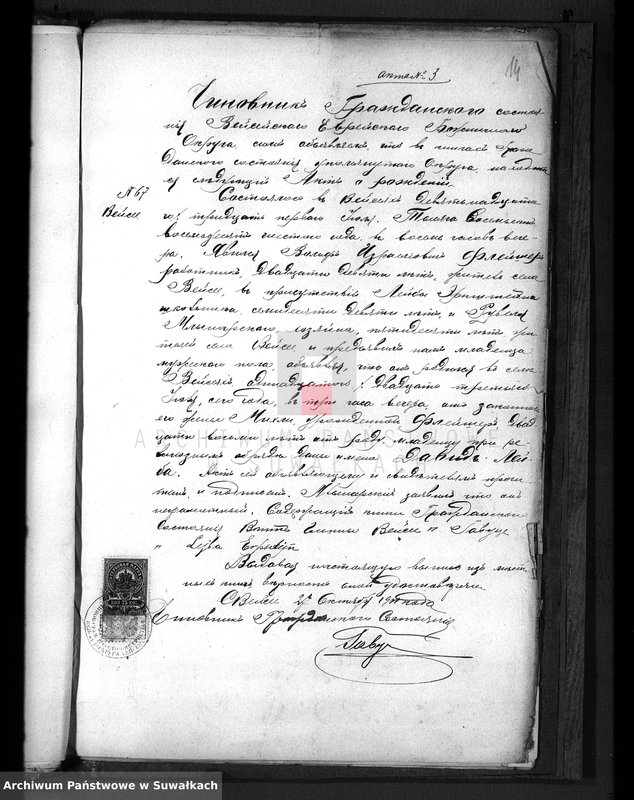 14
Актъ № 3.
Чиновникъ Гражданского состоя-
нія Вейсейского Еврейского Божничного
Округа, симъ объявляетъ, что въ книгахъ Граж-
данского состоянія упомянутого Округа, находит-
ся слѣдующій Актъ о рожденіи
№ 67
Вейсее
Состоялось въ Вейсеяхъ Девятнадцата-
го/тридцать перваго Іюля, Тысяча Восемьсотъ
восемьдесятъ шестого года, въ восемь часовъ вече-
ра. Явился Израелевичъ Флейшеръ
работникъ, Двадцати Девяти лѣтъ, житель села
Вейсее, въ присутствіи Лейбы Эрпштейна
школьника, семидесяти Девяти лѣтъ, и Рувела
хозяина, пятидесяти лѣтъ, жи-
телей села Вейсее и предъявилъ намъ младенца
мужеского пола, объявляя, что онъ родился въ селѣ
Вейсеяхъ одиннадцатого/двадцать третьяго
Іюля, сего года, въ три часа вечера, отъ законной
его жены урожденной Флейшеръ, Двад-
цати восьми лѣтъ отъ роду. младенцу при ре-
лигіозномъ обрядѣ дано имя Давидъ-Лей-
ба. Актъ сей объявляющему и свидѣтелямъ прочи-
танъ, и подписанъ. заявилъ что онъ
неграмотный. Содержащій книги Гражданского
состоянія Войтъ гмины Вейсее
" Lejba Erpsztejn
настоящую выпись изъ
книгъ вѣрность оной удостовѣряю
С. Вейсее Октября года
Чиновникъ Гражданского Состоянія
ARCHIWUM PAŃSTWOWE
W SUWAŁKACH
Archiwum Państwowe w Suwałkach